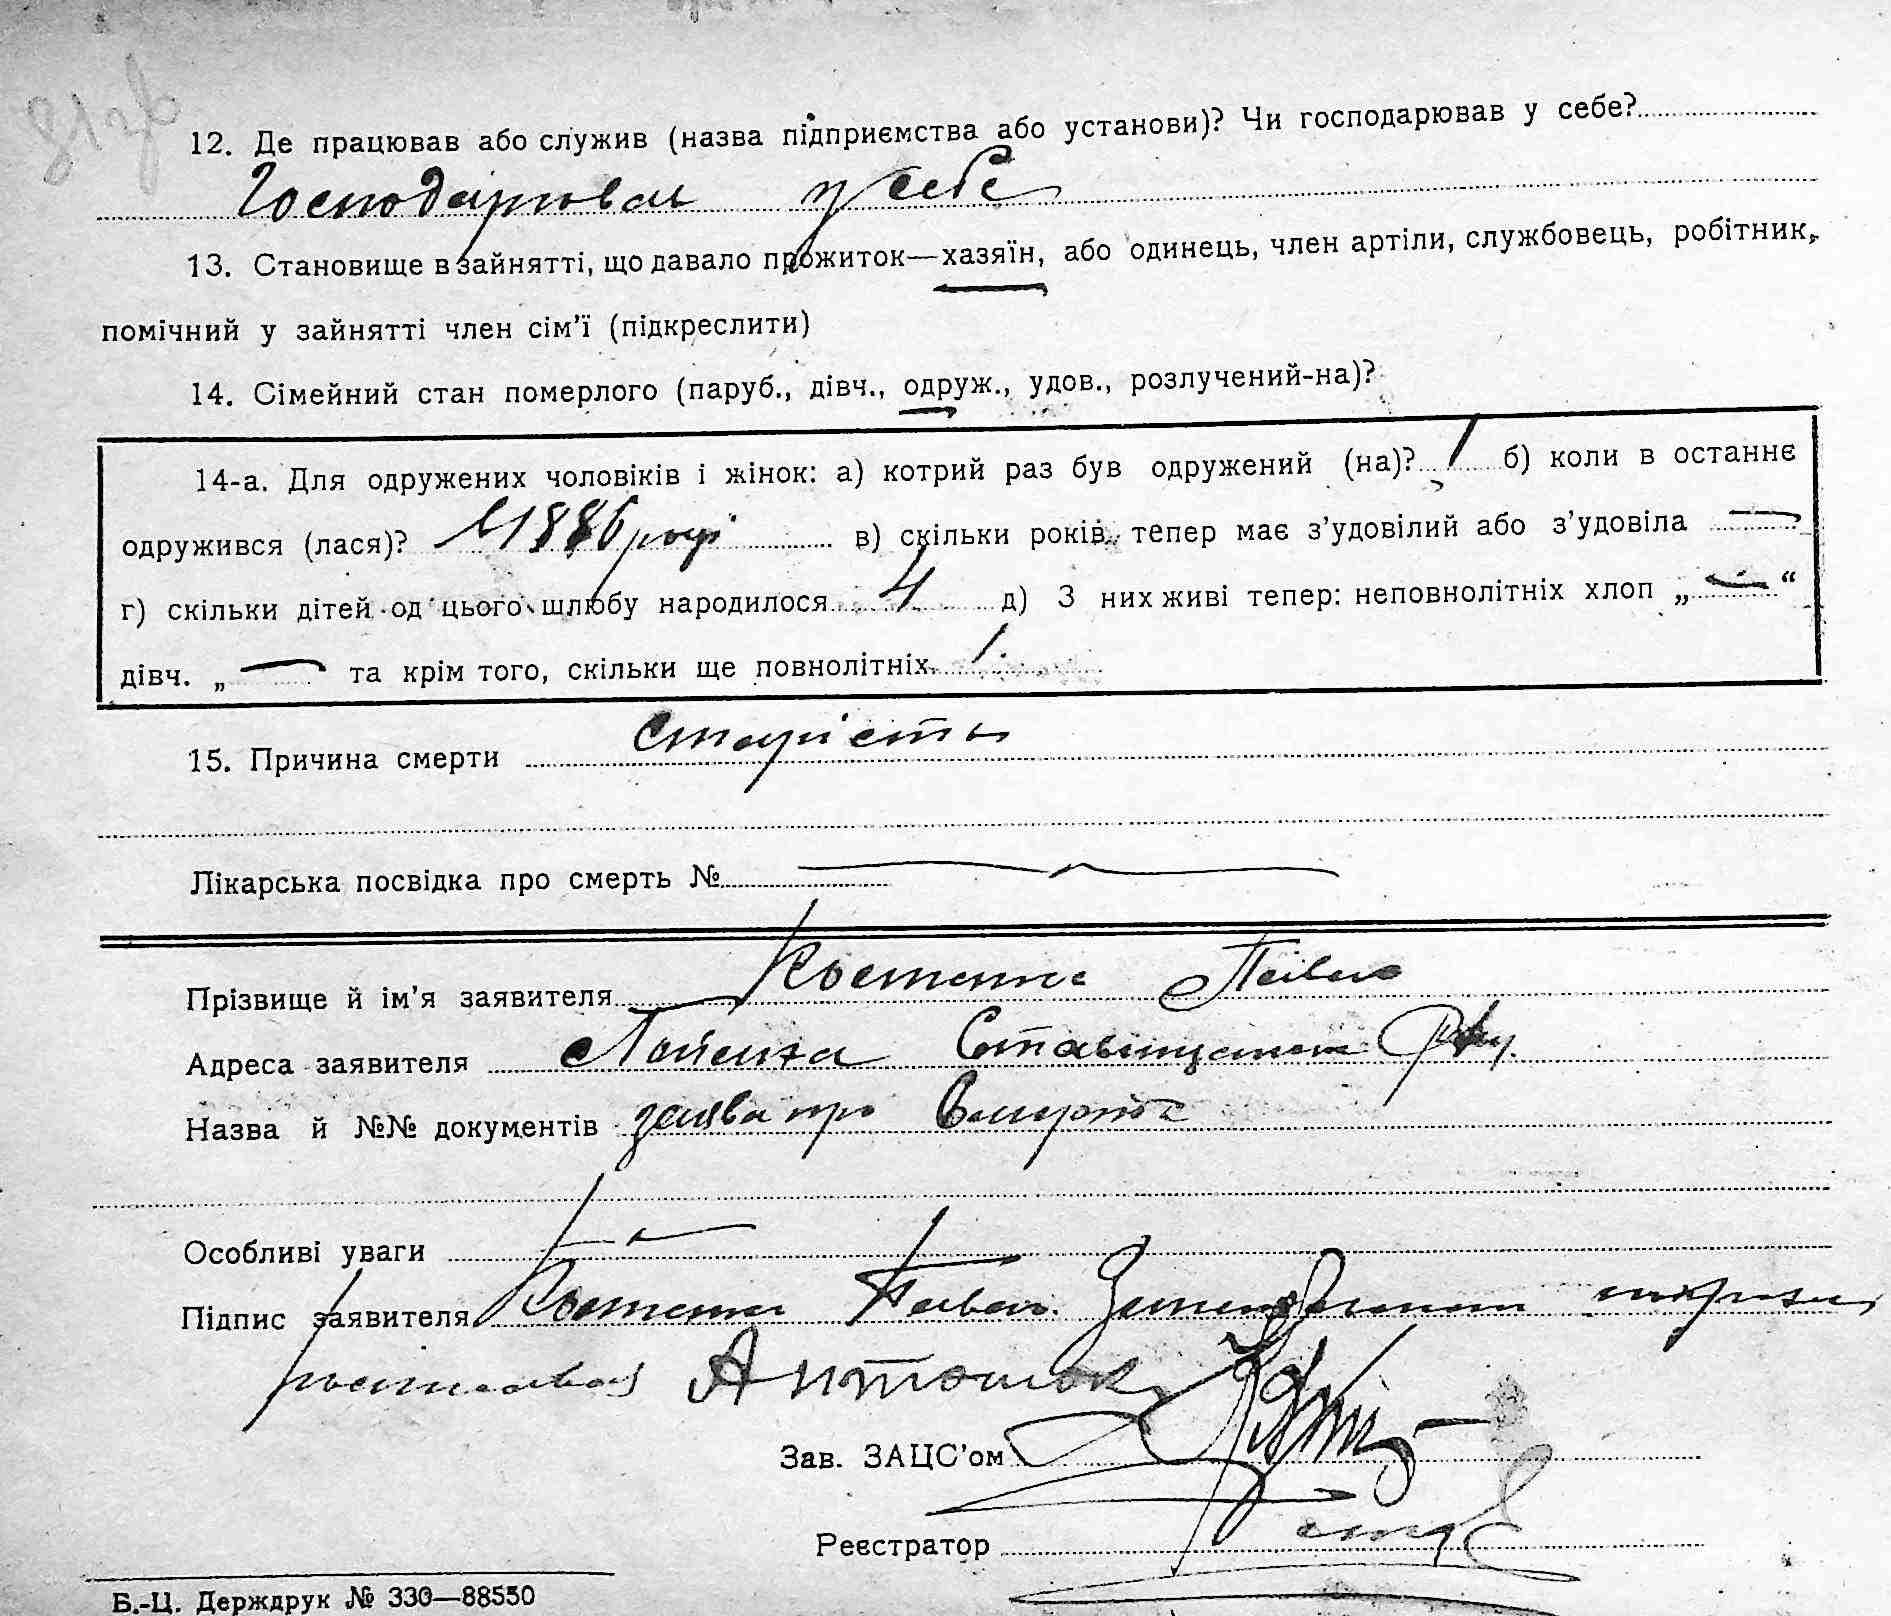 12. Де працював або служив (назва підприємства або установи)? Чи господарював у себе?
Господарювал у себе
13. Становище в зайнятті, що давало прожиток—хазяїн, або одинець, член артіли, службовець, робітник,
помічний у зайнятті член сім'ї (підкреслити)
14. Сімейний стан померлого (паруб., дівч., одруж., удов., розлучений-на)?
14-а. Для одружених чоловіків і жінок: а) котрий раз був одружений (на)? 1 б) коли в останнє
одружився (лася)? 1886 році в) скільки років тепер має з'удовілий або з'удовіла —
г) скільки дітей од цього шлюбу народилося 4 д) З них живі тепер: неповнолітніх хлоп „ — “
дівч. „ — та крім того, скільки ще повнолітніх 1.
15. Причина смерти старість
Лікарська посвідка про смерть № —
Прізвище й ім'я заявителя Костенко Павло
Адреса заявителя
Назва й №№ документів заява про
Особливі уваги —
Підпис заявителя Костенко Павел.
Антонюк
Зав. ЗАЦС'ом
Реєстратор
Б.-Ц. Держдрук № 330—88550